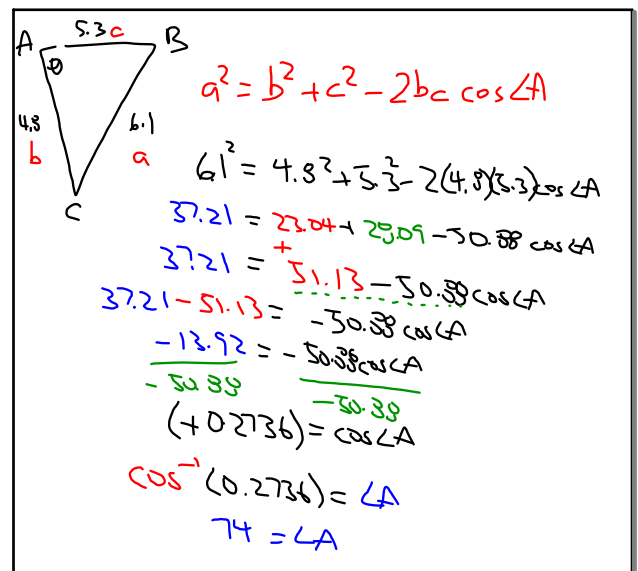 5.3 c
A B
θ
4.8 6.1
b a
C
a² = b² + c² - 2bc cos∠A
6.1² = 4.8² + 5.3² - 2(4.8)(5.3)cos∠A
37.21 = 23.04 + 28.09 - 50.88 cos∠A
37.21 = + 51.13 - 50.88 cos∠A
37.21 - 51.13 = -50.88 cos∠A
-13.92 = -50.88 cos∠A
-50.88 -50.88
(+0.2736) = cos∠A
cos⁻¹(0.2736) = ∠A
74 = ∠A